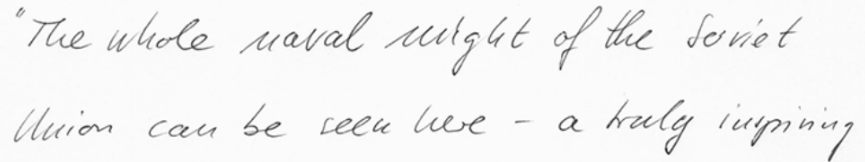 "The whole naval might of the Soviet
Union can be seen here - a truly inspiring